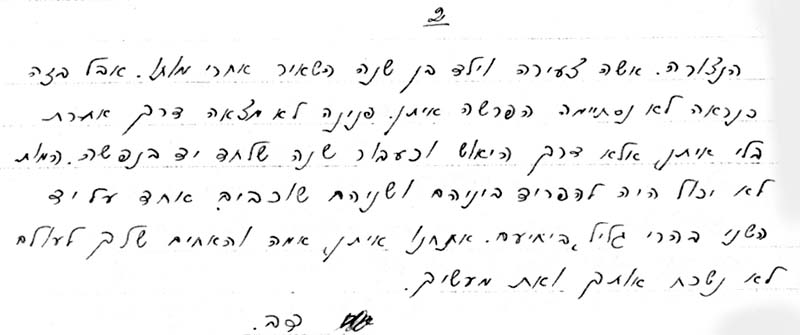 2
הנצורה. אשה צעירה וילד בן שנה השאיר אחרי מותו. אבל בזה
כנראה לא נסתיימה הפרשה איתן. פנינה לא מצאה דרך אחרת
בלי איתן, אלא דרך היאוש וכעבור שנה שלחה יד בנפשה. המות
לא יכול היה להפריד ביניהם ושניהם שוכבים אחד על יד
השני בהרי גליל, ביחיעם. אנחנו איתן, אמה והאחים שלך לעולם
לא נשכח אותך ואת מעשיך.